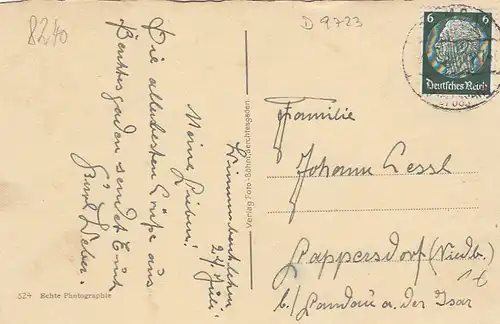 8240
D 9723
6 6
Deutsches Reich
24. Juli.
Meine Lieben!
Die allerbesten Grüße aus
Berchtesgaden sendet Euch
Weber.
Verlag Foto-Böhm, Berchtesgaden.
524 Echte Photographie
Familie
Johann Lessl
Pappersdorf (Niedb.)
b/ Landau a. der Isar